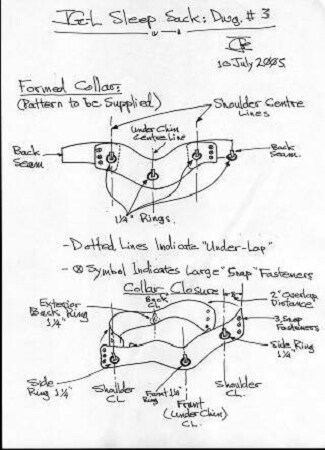 Sleep Sack: Dwg. # 3
10 July 2005
Formed Collar:
(Pattern to be Supplied)
Shoulder Centre
Lines
Under Chin
Centre Line
Back
Seam
Back
Seam
1 1/4" Rings.
- Dotted Lines Indicate "Under-Lap"
- ⊗ Symbol Indicates Large "Snap" Fasteners
Collar Closure
Exterior
Back Ring
1 1/4"
Back
CL
2" Overlap
Distance
3 Snap
Fasteners
Side Ring
1 1/4"
Side
Ring 1 1/4"
Shoulder
CL.
Front 1 1/4"
Ring
Front
(Under Chin)
CL.
Shoulder
CL.